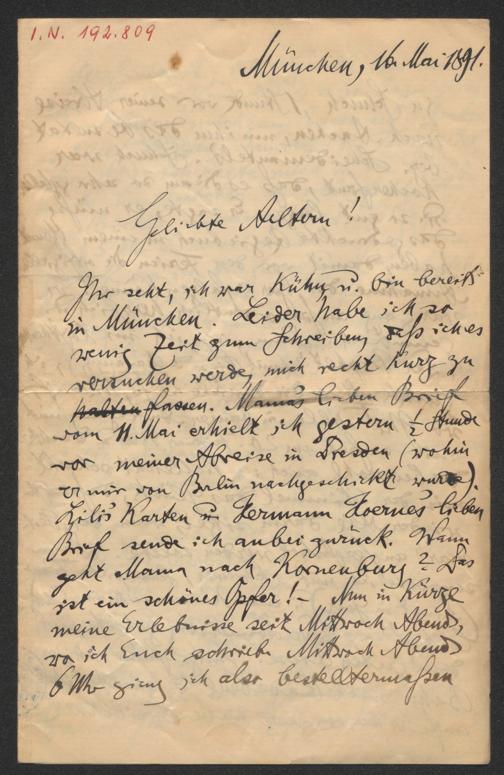 I.N. 192.809
München, 16. Mai 1891.
Geliebte Aeltern!
Ihr seht, ich war kühn u. bin bereits
in München. Leider habe ich so
wenig Zeit zum Schreiben, daß ich es
versuchen werde, mich recht kurz zu
halten fassen. Mama's lieben Brief
vom 11. Mai erhielt ich gestern ½ Stunde
vor meiner Abreise in Dresden (wohin
er mir von Berlin nachgeschickt wurde).
Lili's Karten u. Hermann Hoernes' lieben
Brief sende ich anbei zurück. Wann
geht Mama nach Korneuburg? Das
ist ein schönes Opfer! – Nun in Kürze
meine Erlebnisse seit Mittwoch Abend,
wo ich Euch schrieb. Mittwoch Abend
6 Uhr gieng ich also bestelltermaßen